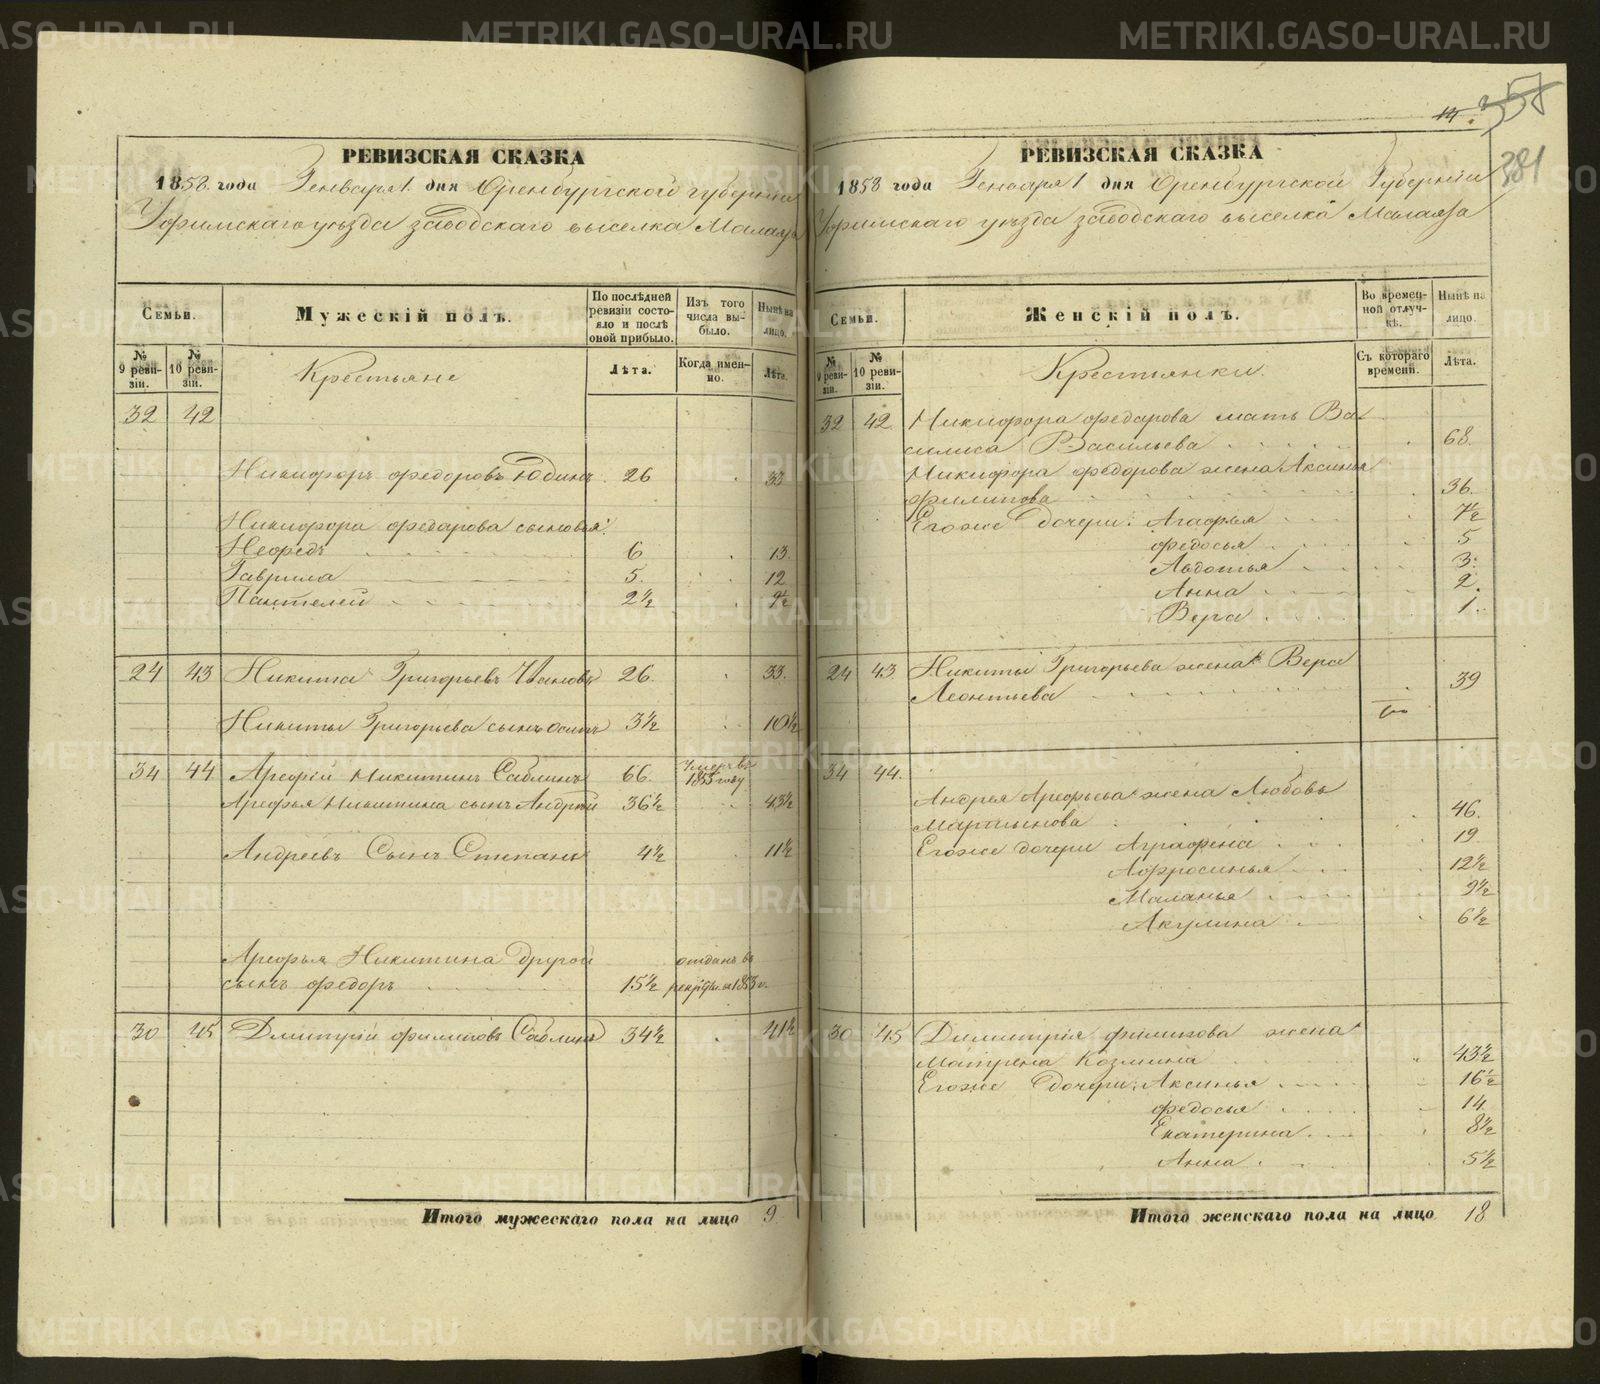 РЕВИЗСКАЯ СКАЗКА
1858 года Генваря 1 дня Оренбургской губерніи
Уфимскаго уѣзда заводскаго выселка Малаяза
Семьи.
Мужескій полъ.
По послѣдней ревизіи состояло и послѣ оной прибыло.
Изъ того числа выбыло.
Нынѣ на лицо.
№ 9 ревизіи.
№ 10 ревизіи.
Крестьяне
Лѣта.
Когда именно.
Лѣта.
32 42
Никифоръ Федоровъ Юдинъ 26 33
Никифора Федарова сыновья:
Нефедъ 6 13
Гаврила 5. 12
Пантелей 2½ 9½
24 43 Никита Григорьевъ 26. 33.
Никиты Григорьева сынъ Осипъ 3½ 10½
34 44 Арефій Никитинъ Саблинъ 66. Умеръ въ 1855 году
Арефья Никитина сынъ Андрей 36½ 43½
Андреевъ Сынъ Степанъ 4½ 11½
Арефья Никитина другой отданъ въ
сынъ Федоръ 15½ рекруты въ 1853 г.
30 45 Дмитрій Филиповъ Саблинъ 34½ 41½
Итого мужескаго пола на лицо 9.
14. 357
381
РЕВИЗСКАЯ СКАЗКА
1858 года Генваря 1 дня Оренбургской Губерніи
Уфимскаго уѣзда заводскаго выселка Малаяза
Семьи.
Женскій полъ.
Во временной отлучкѣ.
Нынѣ на лицо.
№ 9 ревизіи.
№ 10 ревизіи.
Крестьянки.
Съ котораго времени.
Лѣта.
32 42. Никифора Федарова мать Ва-
силиса Васильева 68.
Никифора Федорова жена Аксинья
Филипова 36.
Егоже дочери: Агафья 7½
Федосья 5
Авдотья 3.
Анна 2.
Вера 1.
24 43. Никиты Григорьева жена Вера
Леонтьева 39
34 44.
Андрея Арефьева жена Любовь
Мартынова 46.
Егоже дочери Аграфена 19
Афросинья 12½
Маланья 9½
Акулина 6½
30 45 Димитрія Филипова жена
Матрена Козмина 43½
Егоже дочери: Аксинья 16½
Федосья 14
Екатерина 8½
Анна 5½
Итого женскаго пола на лицо 18
METRIKI.GASO-URAL.RU